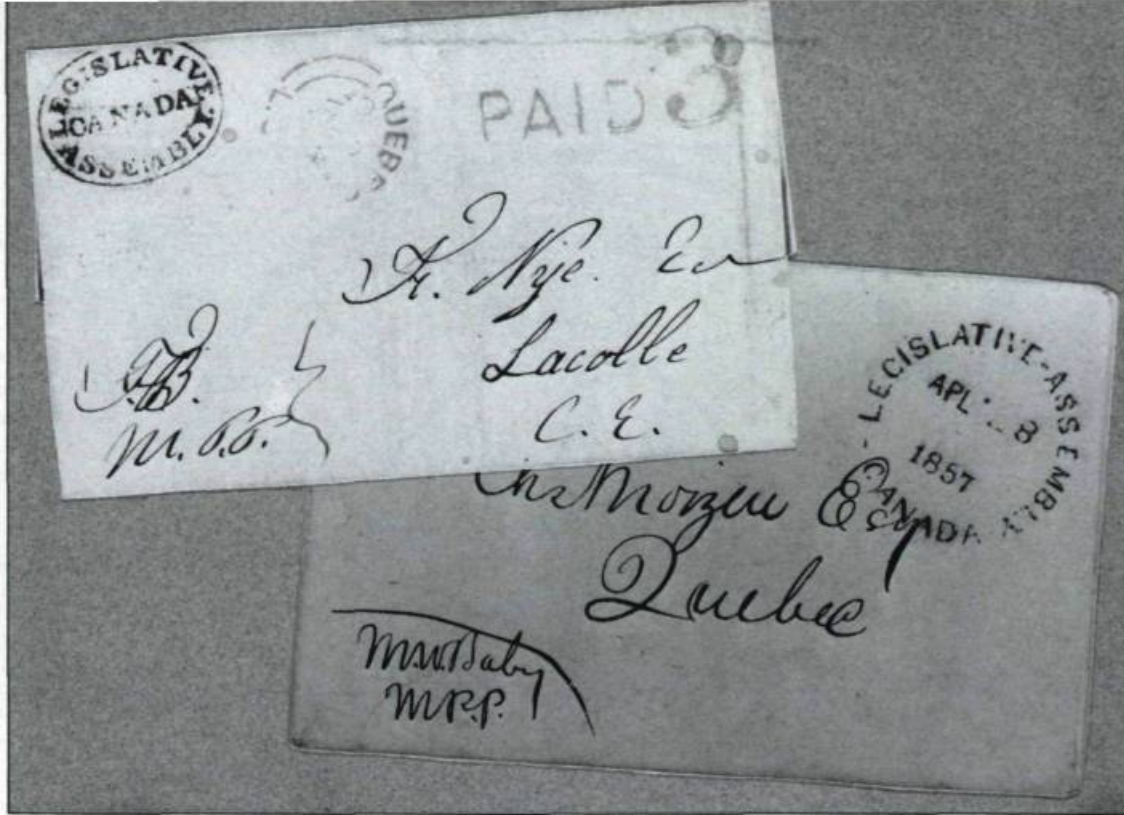 LEGISLATIVE
CANADA
ASSEMBLY.
QUEBE
PAID 3
Nye.
Lacolle
C. E.
T.B.
M.P.P.
LEGISLATIVE-ASSEMBLY
APL 8
1857
CANADA
Esq
Quebec
M.W. Baby
M.P.P.